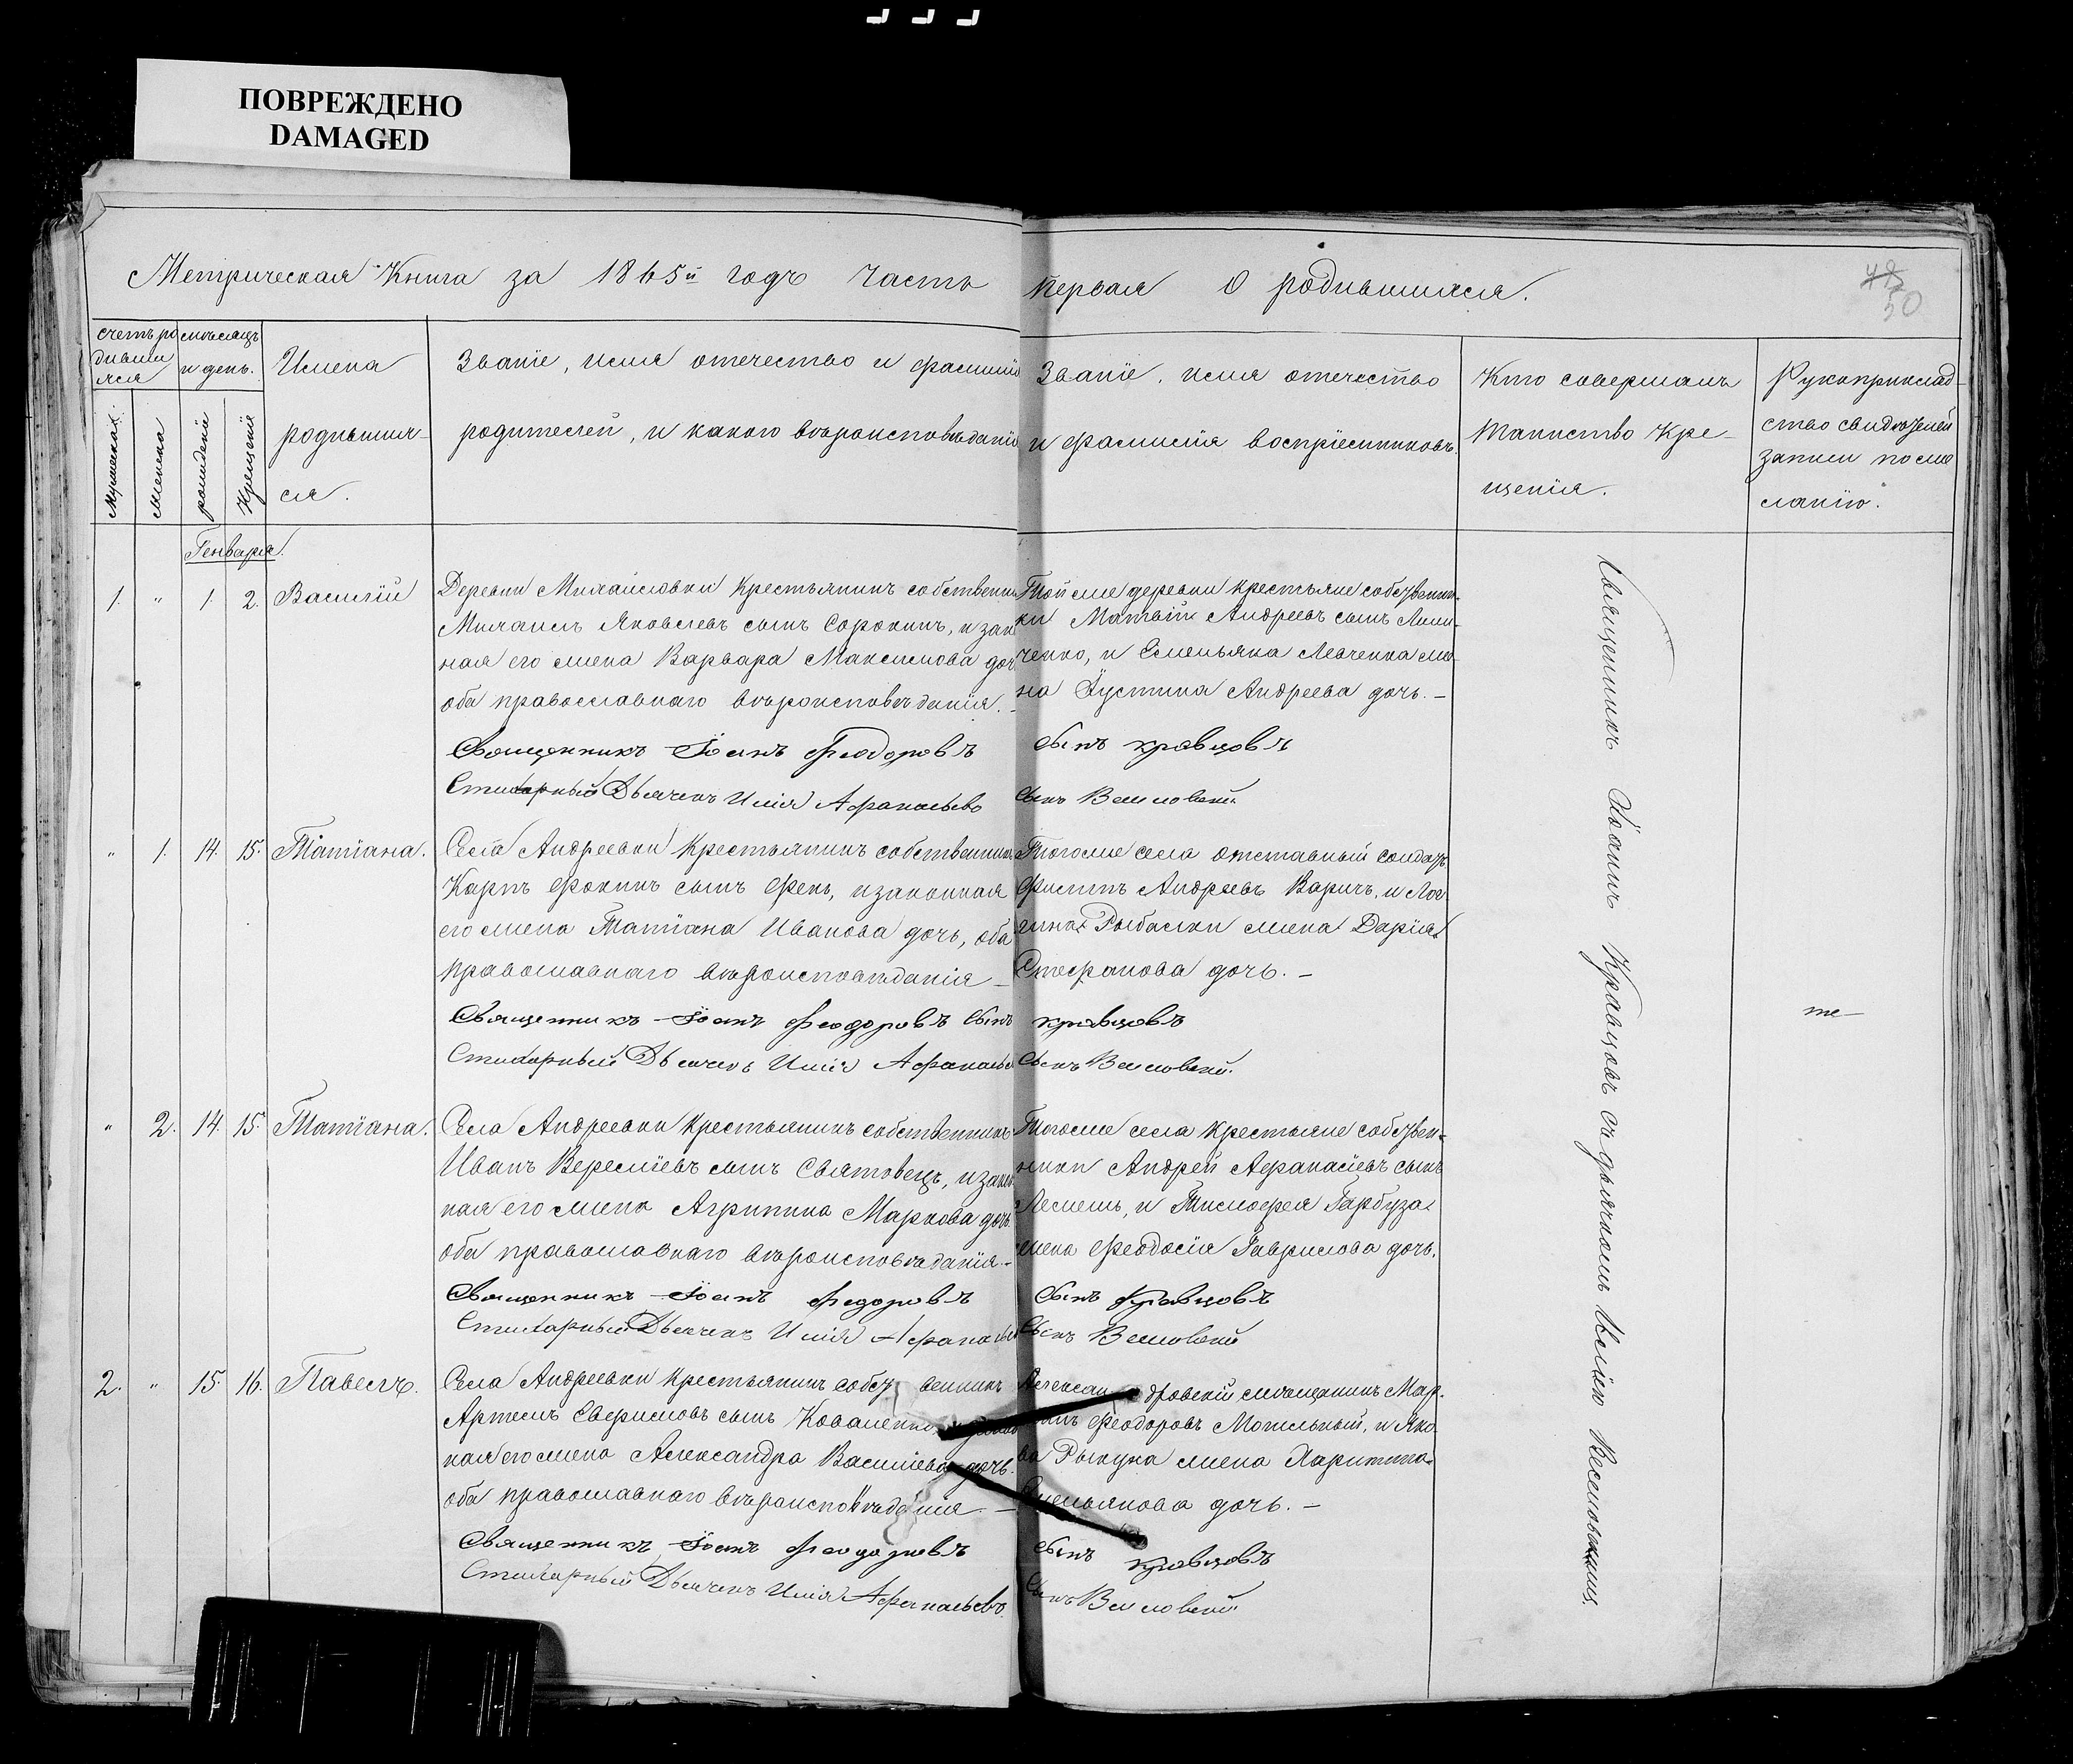 ПОВРЕЖДЕНО
DAMAGED
Метрическая Книга за 1865й годъ часть первая О родившихся.
50
счетъ ро
дивши
хся
мѣсяцъ
и день.
Имена
родивших-
ся.
Званіе, имя отечество и фамилія
родителей, и какого вѣроисповѣданія
Званіе, имя отечество
и фамилія воспріемниковъ.
Кто совершалъ
таинство Кре-
щенія.
Рукоприклад-
ство свидѣтелей
записи по же
ланію.
Мужеска
Женска
рожденія
Крещенія
Генваря.
1. " 1. 2. Василій
Деревни Михайловки Крестьянинъ собственни
Михаилъ Яковлевъ сынъ Сорокинъ, и закон
ная его жена Варвара Максимова доч
оба православнаго вѣроисповѣданія. -
Священникъ Іоанъ Феодоровъ
Стихарный Дьячекъ Илія Афанасьевъ
Той же деревни крестьяне собствен-
ки Матвій Андреевъ сынъ
ченко, и Емельяна Левченка же-
на Іустина Андреева дочь. -
сынъ кравцовъ
сынъ Веиловскій
" 1. 14. 15. Татіана.
Села Андреевки Крестьянинъ собственникъ
Карпъ Фокинъ сынъ Фень, и законная
его жена Татіана Иванова дочь, оба
православнаго вѣроисповѣданія -
Священникъ Іоанъ Феодоровъ сынъ
Стихарный Дьячекъ Илія Афанасьев
Тогоже села отставный солдатъ
Филипъ Андреевъ Варичъ, и Лог
гина Рыбалки жена Дарія
Стефанова дочь. -
кравцовъ
сынъ Веиловскій.
" 2. 14. 15. Татіана.
Села Андреевки Крестьянинъ собственникъ
Иванъ Веремѣевъ сынъ Святовецъ, и закон
ная его жена Агрипина Маркова дочь
оба православнаго вѣроисповѣданія. -
Священникъ Іоанъ Феодоровъ
Стихарный Дьячекъ Илія Афанасьев
Тогоже села крестьяне собствен-
ники Андрей Афанасіевъ сынъ
Лемешъ, и Тимофея Гарбуза
жена Феодосія Гаврилова дочь.
сынъ Кравцовъ
сынъ Веиловскій
2. " 15. 16. Павелъ.
Села Андреевки Крестьянинъ собст венникъ
Артемъ Свериловъ сынъ Коваленко
ная его жена Александра Василіева дочь.
оба православнаго вѣроисповѣданія. -
Священникъ Іоанъ Феодоровъ
Стихарный Дьячекъ Илія Афанасьевъ
Александровскій мѣщанинъ Мар-
тинъ Феодоровъ Могильный, и Яко
ва Рыкуна жена Харитина
Емельянова дочь. -
сынъ кравцовъ
сынъ Веиловскій
Священникъ Іоаннъ Кравцовъ съ дьячкомъ Иліею
те-